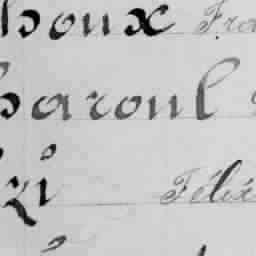 houx Fra
haroul
zi Félix